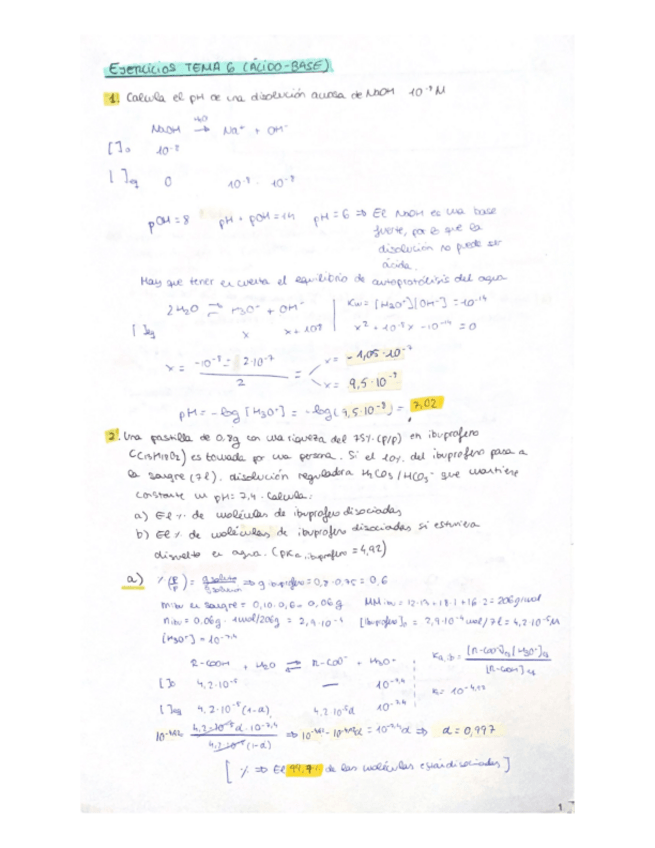 EJERCICIOS TEMA 6 (ÁCIDO-BASE)
1. Calcula el pH de una disolución acuosa de NaOH 10⁻⁸ M
H₂O
NaOH → Na⁺ + OH⁻
[ ]₀ 10⁻⁸
[ ]eq 0 10⁻⁸ 10⁻⁸
pOH = 8 pH + pOH = 14 pH = 6 ⇒ El NaOH es una base
fuerte, por lo que la
disolución no puede ser
ácida.
Hay que tener en cuenta el equilibrio de autoprotólisis del agua
2H₂O ⇌ H₃O⁺ + OH⁻ Kw = [H₃O⁺][OH⁻] = 10⁻¹⁴
[ ]eq x x + 10⁻⁸ x² + 10⁻⁸x - 10⁻¹⁴ = 0
x = -10⁻⁸ ± 2·10⁻⁷ / 2 = x = -1,05·10⁻⁷
x = 9,5·10⁻⁸
pH = -log [H₃O⁺] = -log(9,5·10⁻⁸) = 7,02
2. Una pastilla de 0,8g con una riqueza del 75% (p/p) en ibuprofeno
(C13H18O2) es tomada por una persona. Si el 10% del ibuprofeno pasa a
la sangre (7l), disolución reguladora H₂CO₃/HCO₃⁻ que mantiene
constante un pH = 7,4. Calcula:
a) El % de moléculas de ibuprofeno disociadas
b) El % de moléculas de ibuprofeno disociadas si estuviera
disuelto en agua. (pKa, ibuprofeno = 4,92)
a) % (p/p) = g soluto / g disolución ⇒ g ibuprofeno = 0,8 · 0,75 = 0,6
m ibu en sangre = 0,10 · 0,6 = 0,06g MM ibu = 12·13 + 18·1 + 16·2 = 206g/mol
n ibu = 0,06g · 1mol/206g = 2,9·10⁻⁴ [Ibuprofeno]₀ = 2,9·10⁻⁴ mol/7l = 4,2·10⁻⁵ M
[H₃O⁺] = 10⁻⁷,⁴
R-COOH + H₂O ⇌ R-COO⁻ + H₃O⁺ Ka, ib = [R-COO⁻]eq [H₃O⁺]eq / [R-COOH]eq
[ ]₀ 4,2·10⁻⁵ — 10⁻⁷,⁴ K = 10⁻⁴,⁹²
[ ]eq 4,2·10⁻⁵(1-α) 4,2·10⁻⁵α 10⁻⁷,⁴
10⁻⁴,⁹² = 4,2·10⁻⁵α · 10⁻⁷,⁴ / 4,2·10⁻⁵(1-α) ⇒ 10⁻⁴,⁹² - 10⁻⁴,⁹²α = 10⁻⁷,⁴α ⇒ α = 0,997
[ % ⇒ El 99,7% de las moléculas están disociadas ]
1